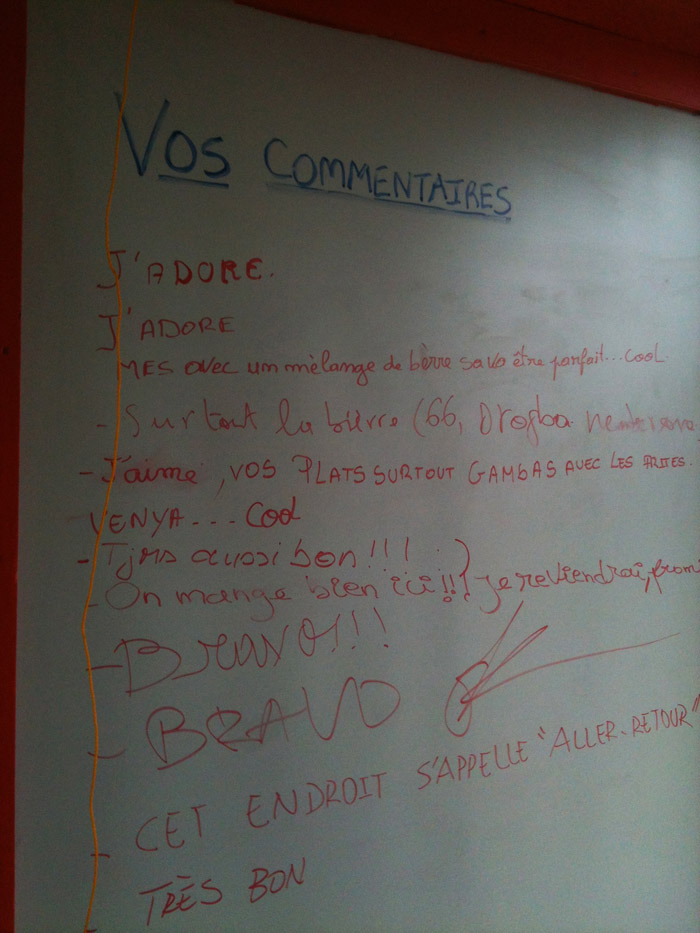 VOS COMMENTAIRES
J'ADORE.
J'ADORE
MES avec un mèlange de bèrre sa va être parfait...COOL
- Surtout la bièrre (66, Drogba
- J'aime, VOS PLATS SURTOUT GAMBAS AVEC LES FRITES.
VENYA... Cool
- Tjrs aussi bon!!!
- On mange bien ici!!! Je reviendrai, promi
- Bravo!!!
- BRAVO
- CET ENDROIT S'APPELLE "ALLER-RETOUR"
TRÈS BON